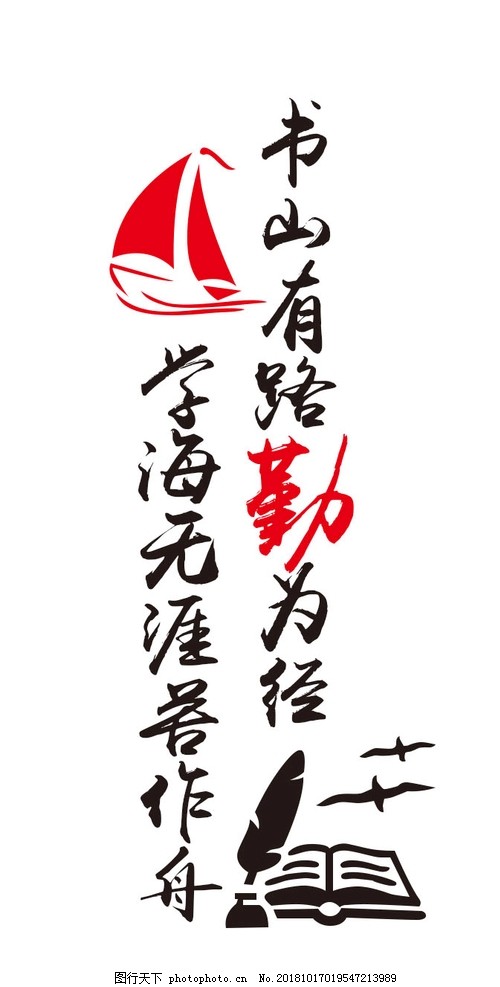 书山有路勤为经
学海无涯苦作舟
图行天下 photophoto.cn No.20181017019547213989